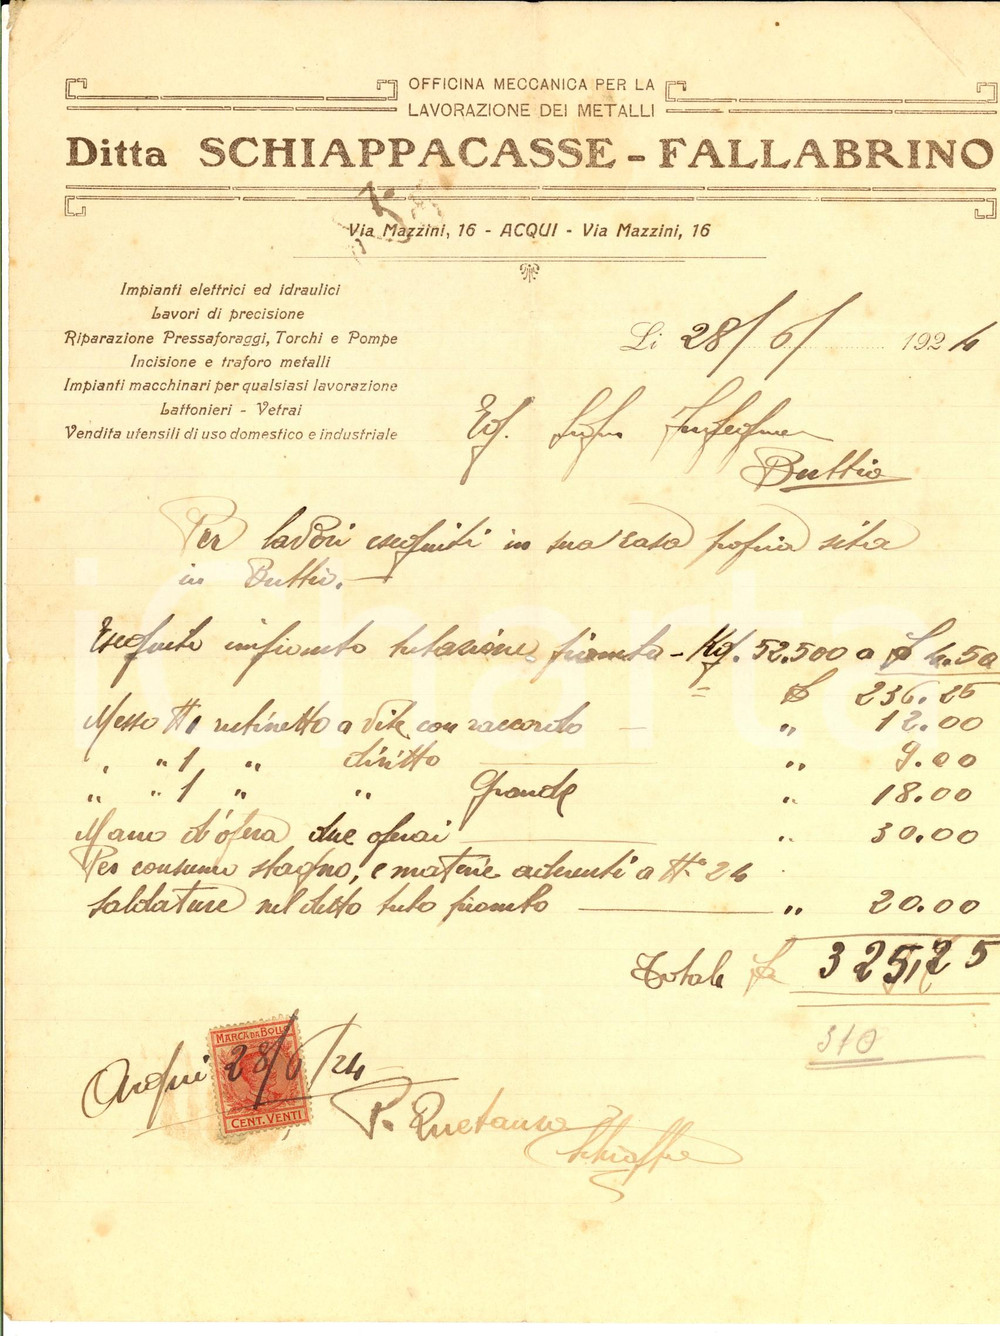 OFFICINA MECCANICA PER LA
LAVORAZIONE DEI METALLI
Ditta SCHIAPPACASSE - FALLABRINO
Via Mazzini, 16 - ACQUI - Via Mazzini, 16
Impianti elettrici ed idraulici
Lavori di precisione
Riparazione Pressaforaggi, Torchi e Pompe
Incisione e traforo metalli
Impianti macchinari per qualsiasi lavorazione
Lattonieri - Vetrai
Vendita utensili di uso domestico e industriale
Li 28/6/1924
Bubbio
Per lavori eseguiti in sua casa propria sita
in Bubbio.
Eseguito impianto tubazione piombo - Kg. 52.500 a £ 4.50
£ 236.25
Messo N° 1 rubinetto a vite con raccordo - " 12.00
" " 1 " diritto " 9.00
" " 1 " " Grande " 18.00
Mano d'opera due operai " 30.00
Per consumo stagno, e materie aderenti a N° 24
saldature nel detto tubo piombo " 20.00
Totale £ 325,25
310
MARCA DA BOLLO
CENT. VENTI
Acqui 28/6/24
P.
iCharta